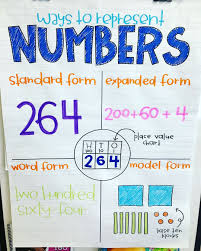 ways to represent
NUMBERS
standard form
expanded form
264
200+60+4
place value
chart
H T O
264
word form
model form
two hundred
sixty-four
base ten
blocks